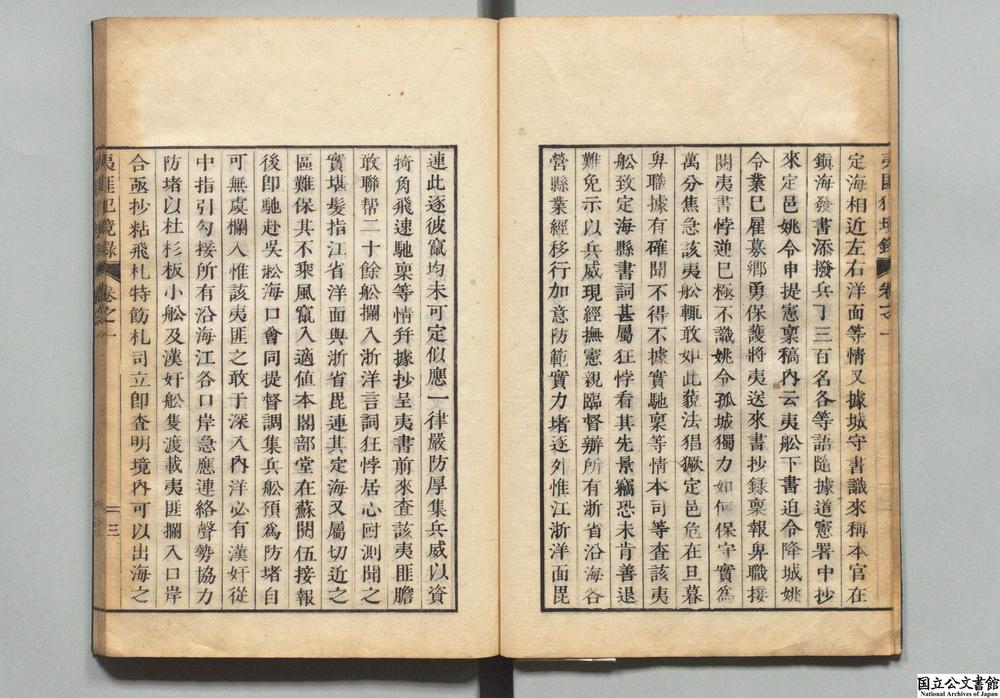 定海相近左右洋面等情又據城守書識來稱本官在
鎭海發書添撥兵丁三百名各等語隨據道憲署中抄
來定邑姚令申提憲稟稿內云夷舩下書迫令降城姚
令業巳雇募鄕勇保護將夷送來書抄錄稟報卑職接
閱夷書悖逆巳極不識姚令孤城獨力如何保守實爲
萬分焦急該夷舩輒敢如此藐法猖獗定邑危在旦暮
卑職據有確聞不得不據實馳稟等情本司等查該夷
舩致定海縣書詞甚屬狂悖看其先景竊恐未肯善退
難免示以兵威現經撫憲親臨督辦所有浙省沿海各
營縣業經移行加意防範實力堵逐外惟江浙洋面毘
連此逐彼竄均未可定似應一律嚴防厚集兵威以資
犄角飛速馳稟等情幷據抄呈夷書前來查該夷匪膽
敢聯帮二十餘舩攔入浙洋言詞狂悖居心叵測聞之
實堪髮指江省洋面與浙省毘連其定海又屬切近之
區難保其不乘風竄入適値本閣部堂在蘇閱伍接報
後卽馳赴吳淞海口會同提督調集兵舩預爲防堵自
可無虞攔入惟該夷匪之敢于深入內洋必有漢奸從
中指引勾接所有沿海江各口岸急應連絡聲勢協力
防堵以杜杉板小舩及漢奸舩隻渡載夷匪攔入口岸
合亟抄粘飛札特飭札司立卽查明境內可以出海之
夷匪犯境錄 卷之一 三
国立公文書館
National Archives of Japan